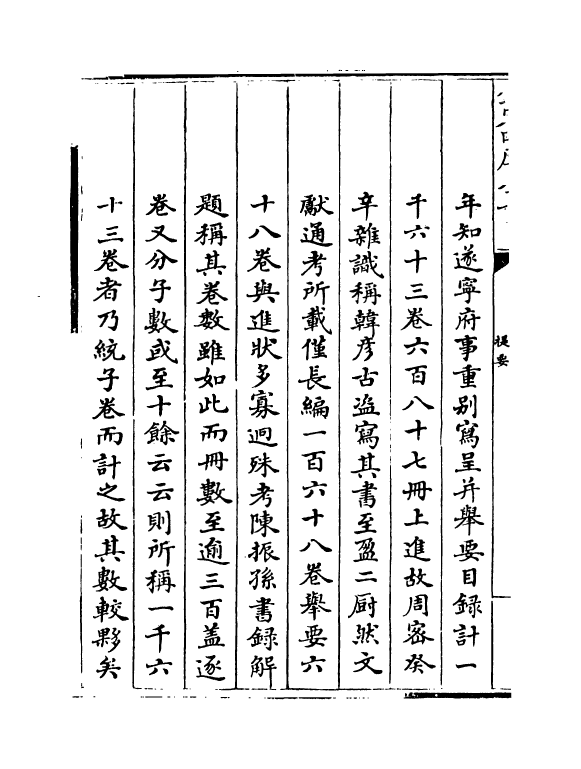 提要
年知遂寧府事重别寫呈并舉要目録計一
千六十三卷六百八十七冊上進故周密癸
辛雜識稱韓彦古盗寫其書至盈二厨然文
獻通考所載僅長編一百六十八卷舉要六
十八卷與進狀多寡迥殊考陳振孫書録解
題稱其卷數雖如此而冊數至逾三百盖逐
卷又分子數或至十餘云云則所稱一千六
十三卷者乃統子卷而計之故其數較夥矣